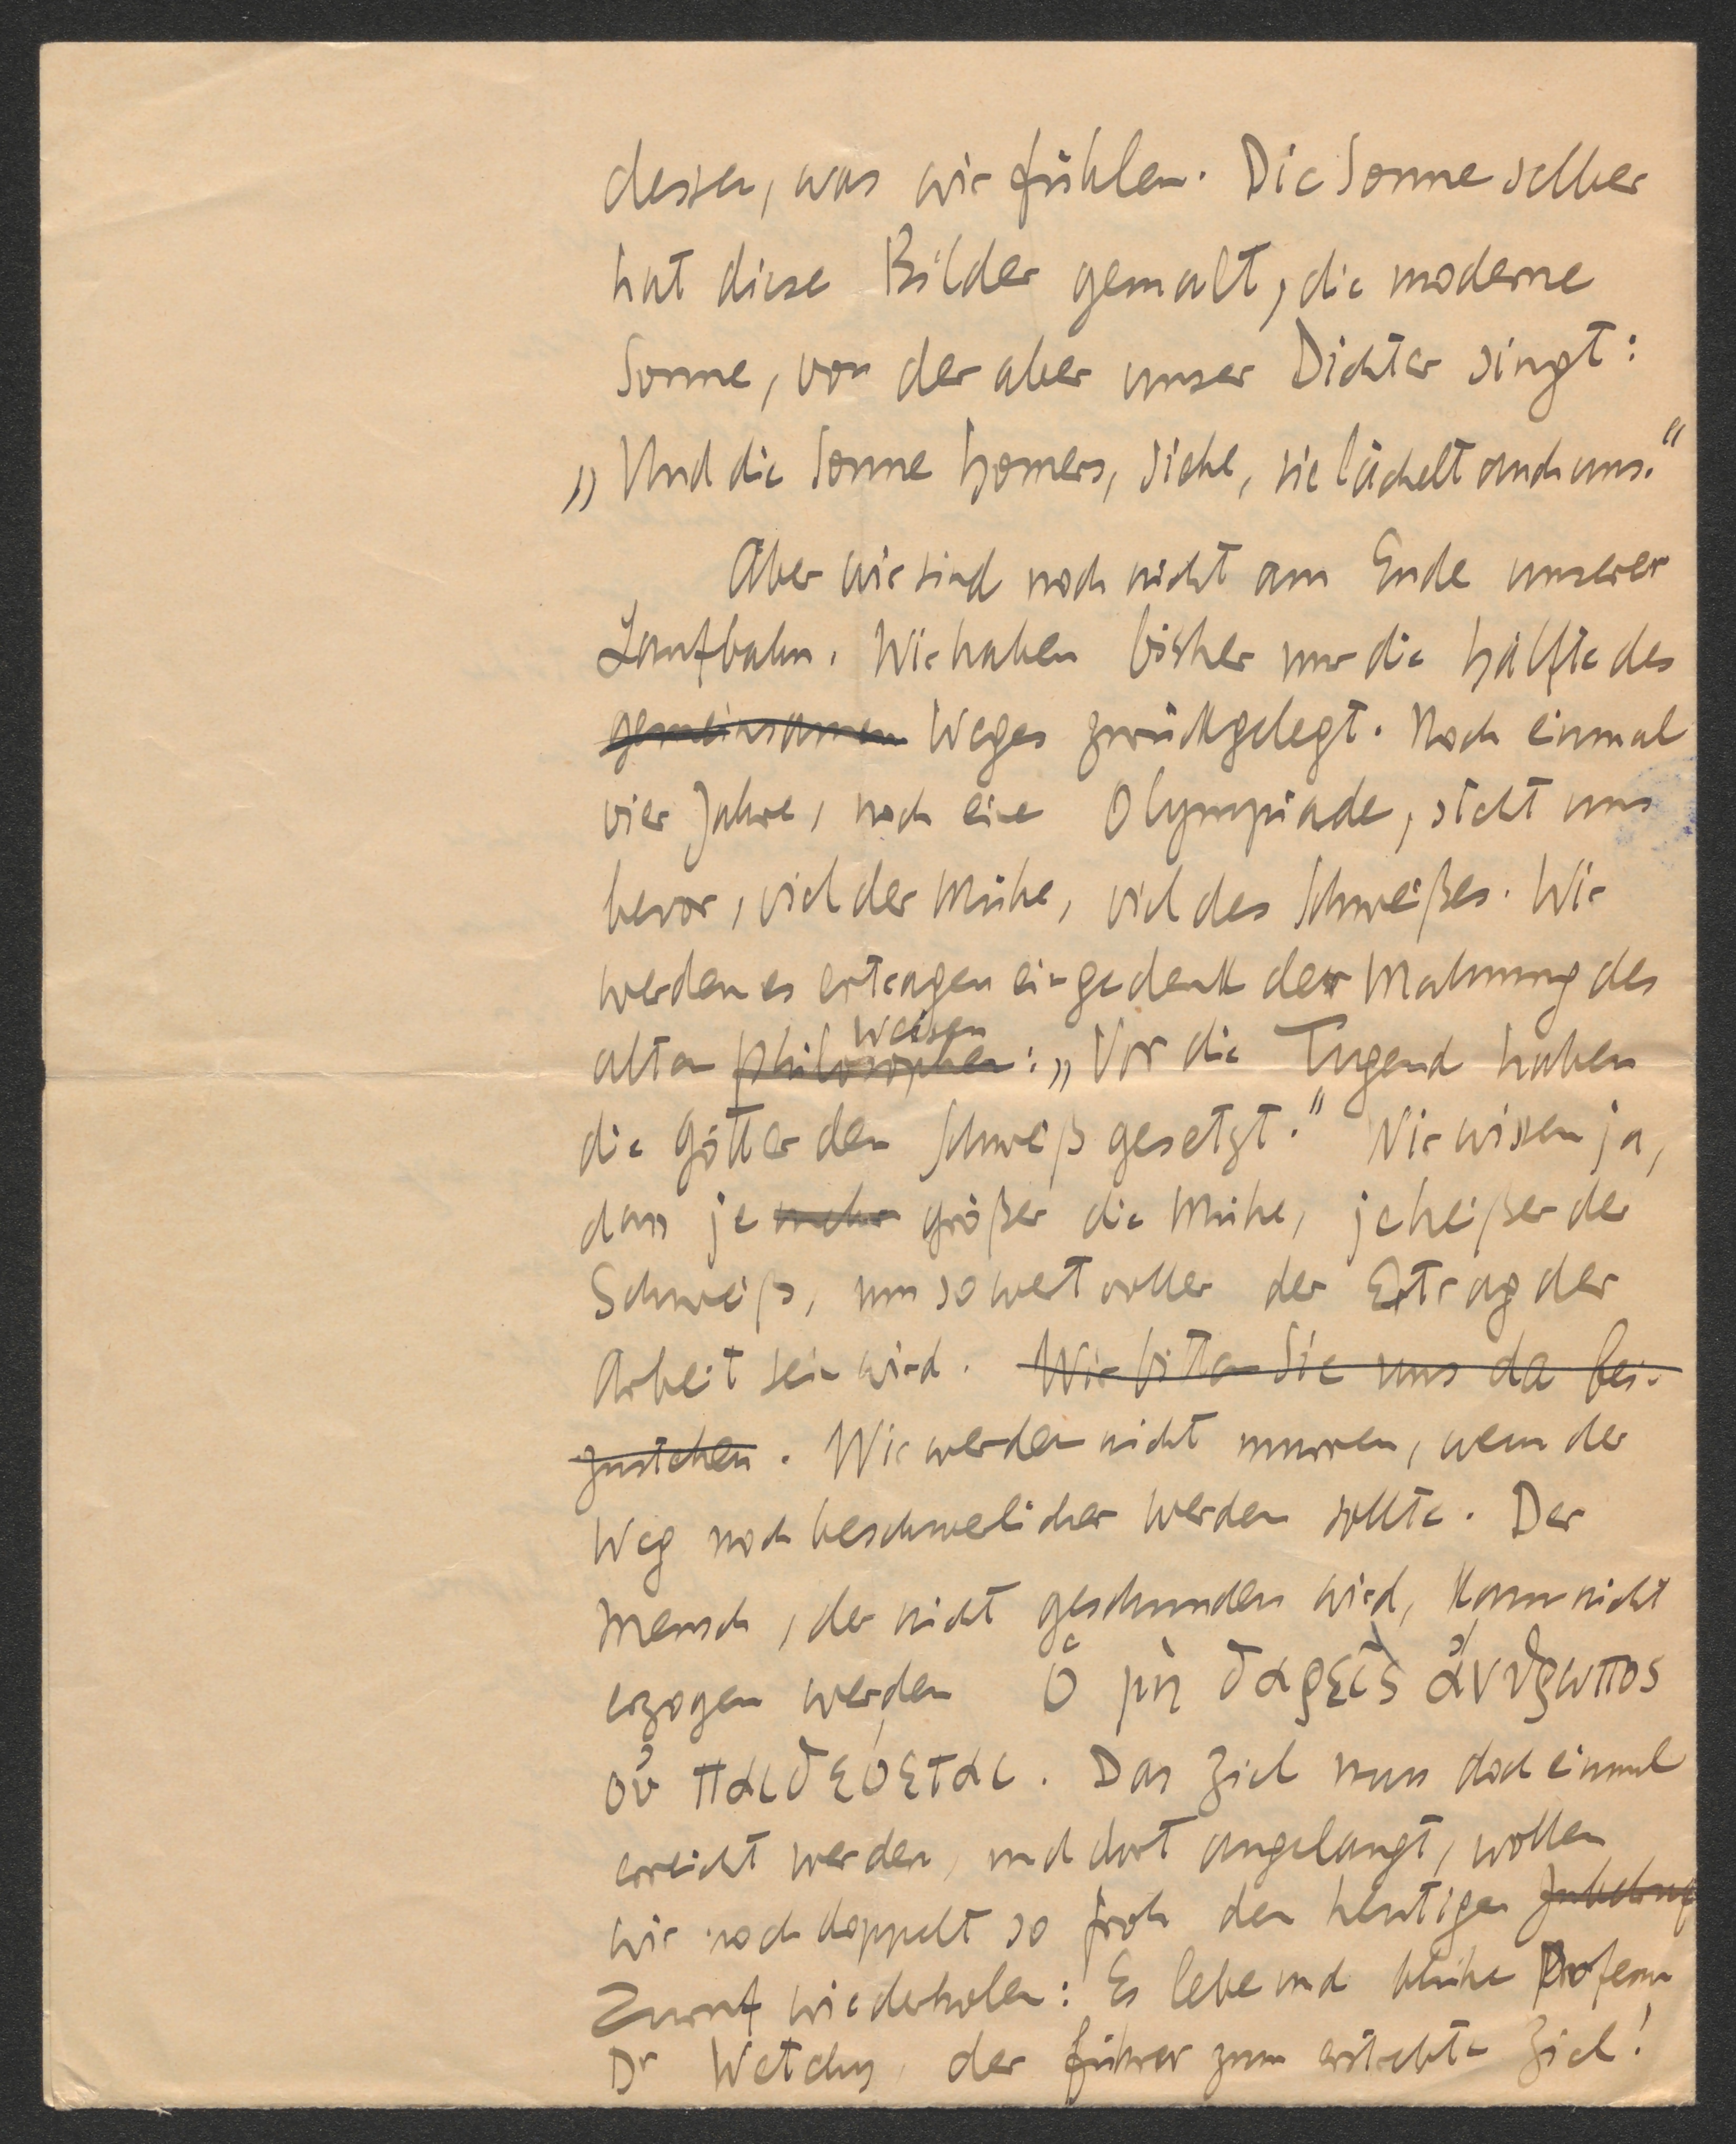 dessen, was wir fühlen. Die Sonne selber
hat diese Bilder gemalt, die moderne
Sonne, von der aber unser Dichter singt:
„Und die Sonne Homers, siehe, sie lächelt auch uns."
Aber wir sind noch nicht am Ende unserer
Laufbahn. Wir haben bisher nur die Hälfte des
gemeinsamen Weges zurückgelegt. Noch einmal
vier Jahre, noch eine Olympiade, steht uns
bevor, viel der Mühe, viel des Schweißes. Wir
werden es ertragen eingedenk der Mahnung des
Weisen
alten Philosophen: „Vor die Tugend haben
die Götter den Schweiß gesetzt." Wir wissen ja,
dass je mehr größer die Mühe, je heißer der
Schweiß, um so wertvoller der Ertrag der
Arbeit sein wird. Wir bitten Sie uns da bei-
zustehen. Wir werden nicht murren, wenn der
Weg noch beschwerlicher werden sollte. Der
Mensch, der nicht geschunden wird, kann nicht
erzogen werden Ὁ μὴ δαρεὶς ἄνϑρωπος
οὐ παιδεύεται. Das Ziel muss doch einmal
erreicht werden, und dort angelangt, wollen
wir noch doppelt so froh den heutigen Jubelruf
Zuruf wiederholen: Es lebe und blühe Professor
Dr Wetchy, der Führer zum erstrebten Ziel!